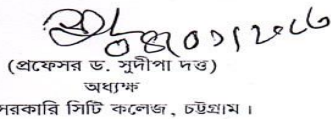 (প্রফেসর ড. সুদীপা দত্ত)
অধ্যক্ষ
সরকারি সিটি কলেজ, চট্টগ্রাম।